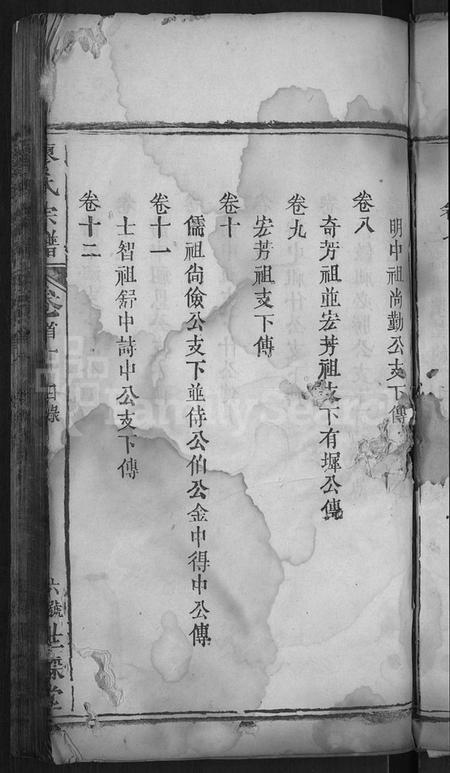 明中祖尚勤公支下傳
卷八
奇芳祖並宏芳祖支下有墀公傳
卷九
宏芳祖支下傳
卷十
儒祖尙儉公支下並侍公伯公金中得中公傳
卷十一
士智祖舒中詩中公支下傳
卷十二
氏宗譜 卷首 目錄 六號